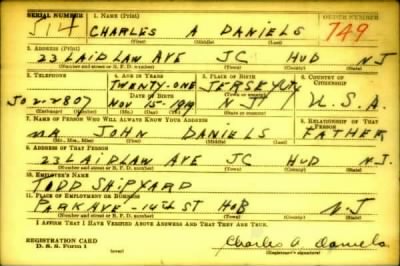 SERIAL NUMBER 1. NAME (Print) ORDER NUMBER
514 CHARLES A DANIELS 749
(First) (Middle) (Last)
2. ADDRESS (Print)
23 LAIDLAW AVE JC HUD NJ
(Number and street or R. F. D. number) (Town) (County) (State)
3. TELEPHONE 4. AGE IN YEARS 5. PLACE OF BIRTH 6. COUNTRY OF CITIZENSHIP
TWENTY-ONE JERSEY CITY
DATE OF BIRTH (Town or county)
JO 2-2807 NOV 15-1919 NJ U.S.A.
(Exchange) (Number) (Mo.) (Day) (Yr.) (State or country)
7. NAME OF PERSON WHO WILL ALWAYS KNOW YOUR ADDRESS 8. RELATIONSHIP OF THAT PERSON
MR JOHN DANIELS FATHER
(Mr., Mrs., Miss) (First) (Middle) (Last)
9. ADDRESS OF THAT PERSON
23 LAIDLAW AVE JC HUD N.J.
(Number and street or R. F. D. number) (Town) (County) (State)
10. EMPLOYER'S NAME
TODD SHIPYARD
11. PLACE OF EMPLOYMENT OR BUSINESS
PARK AVE - 14TH ST HOB N-J
(Number and street or R. F. D. number) (Town) (County) (State)
I AFFIRM THAT I HAVE VERIFIED ABOVE ANSWERS AND THAT THEY ARE TRUE.
REGISTRATION CARD
D. S. S. Form 1
Charles A. Daniels
(Registrant's signature)